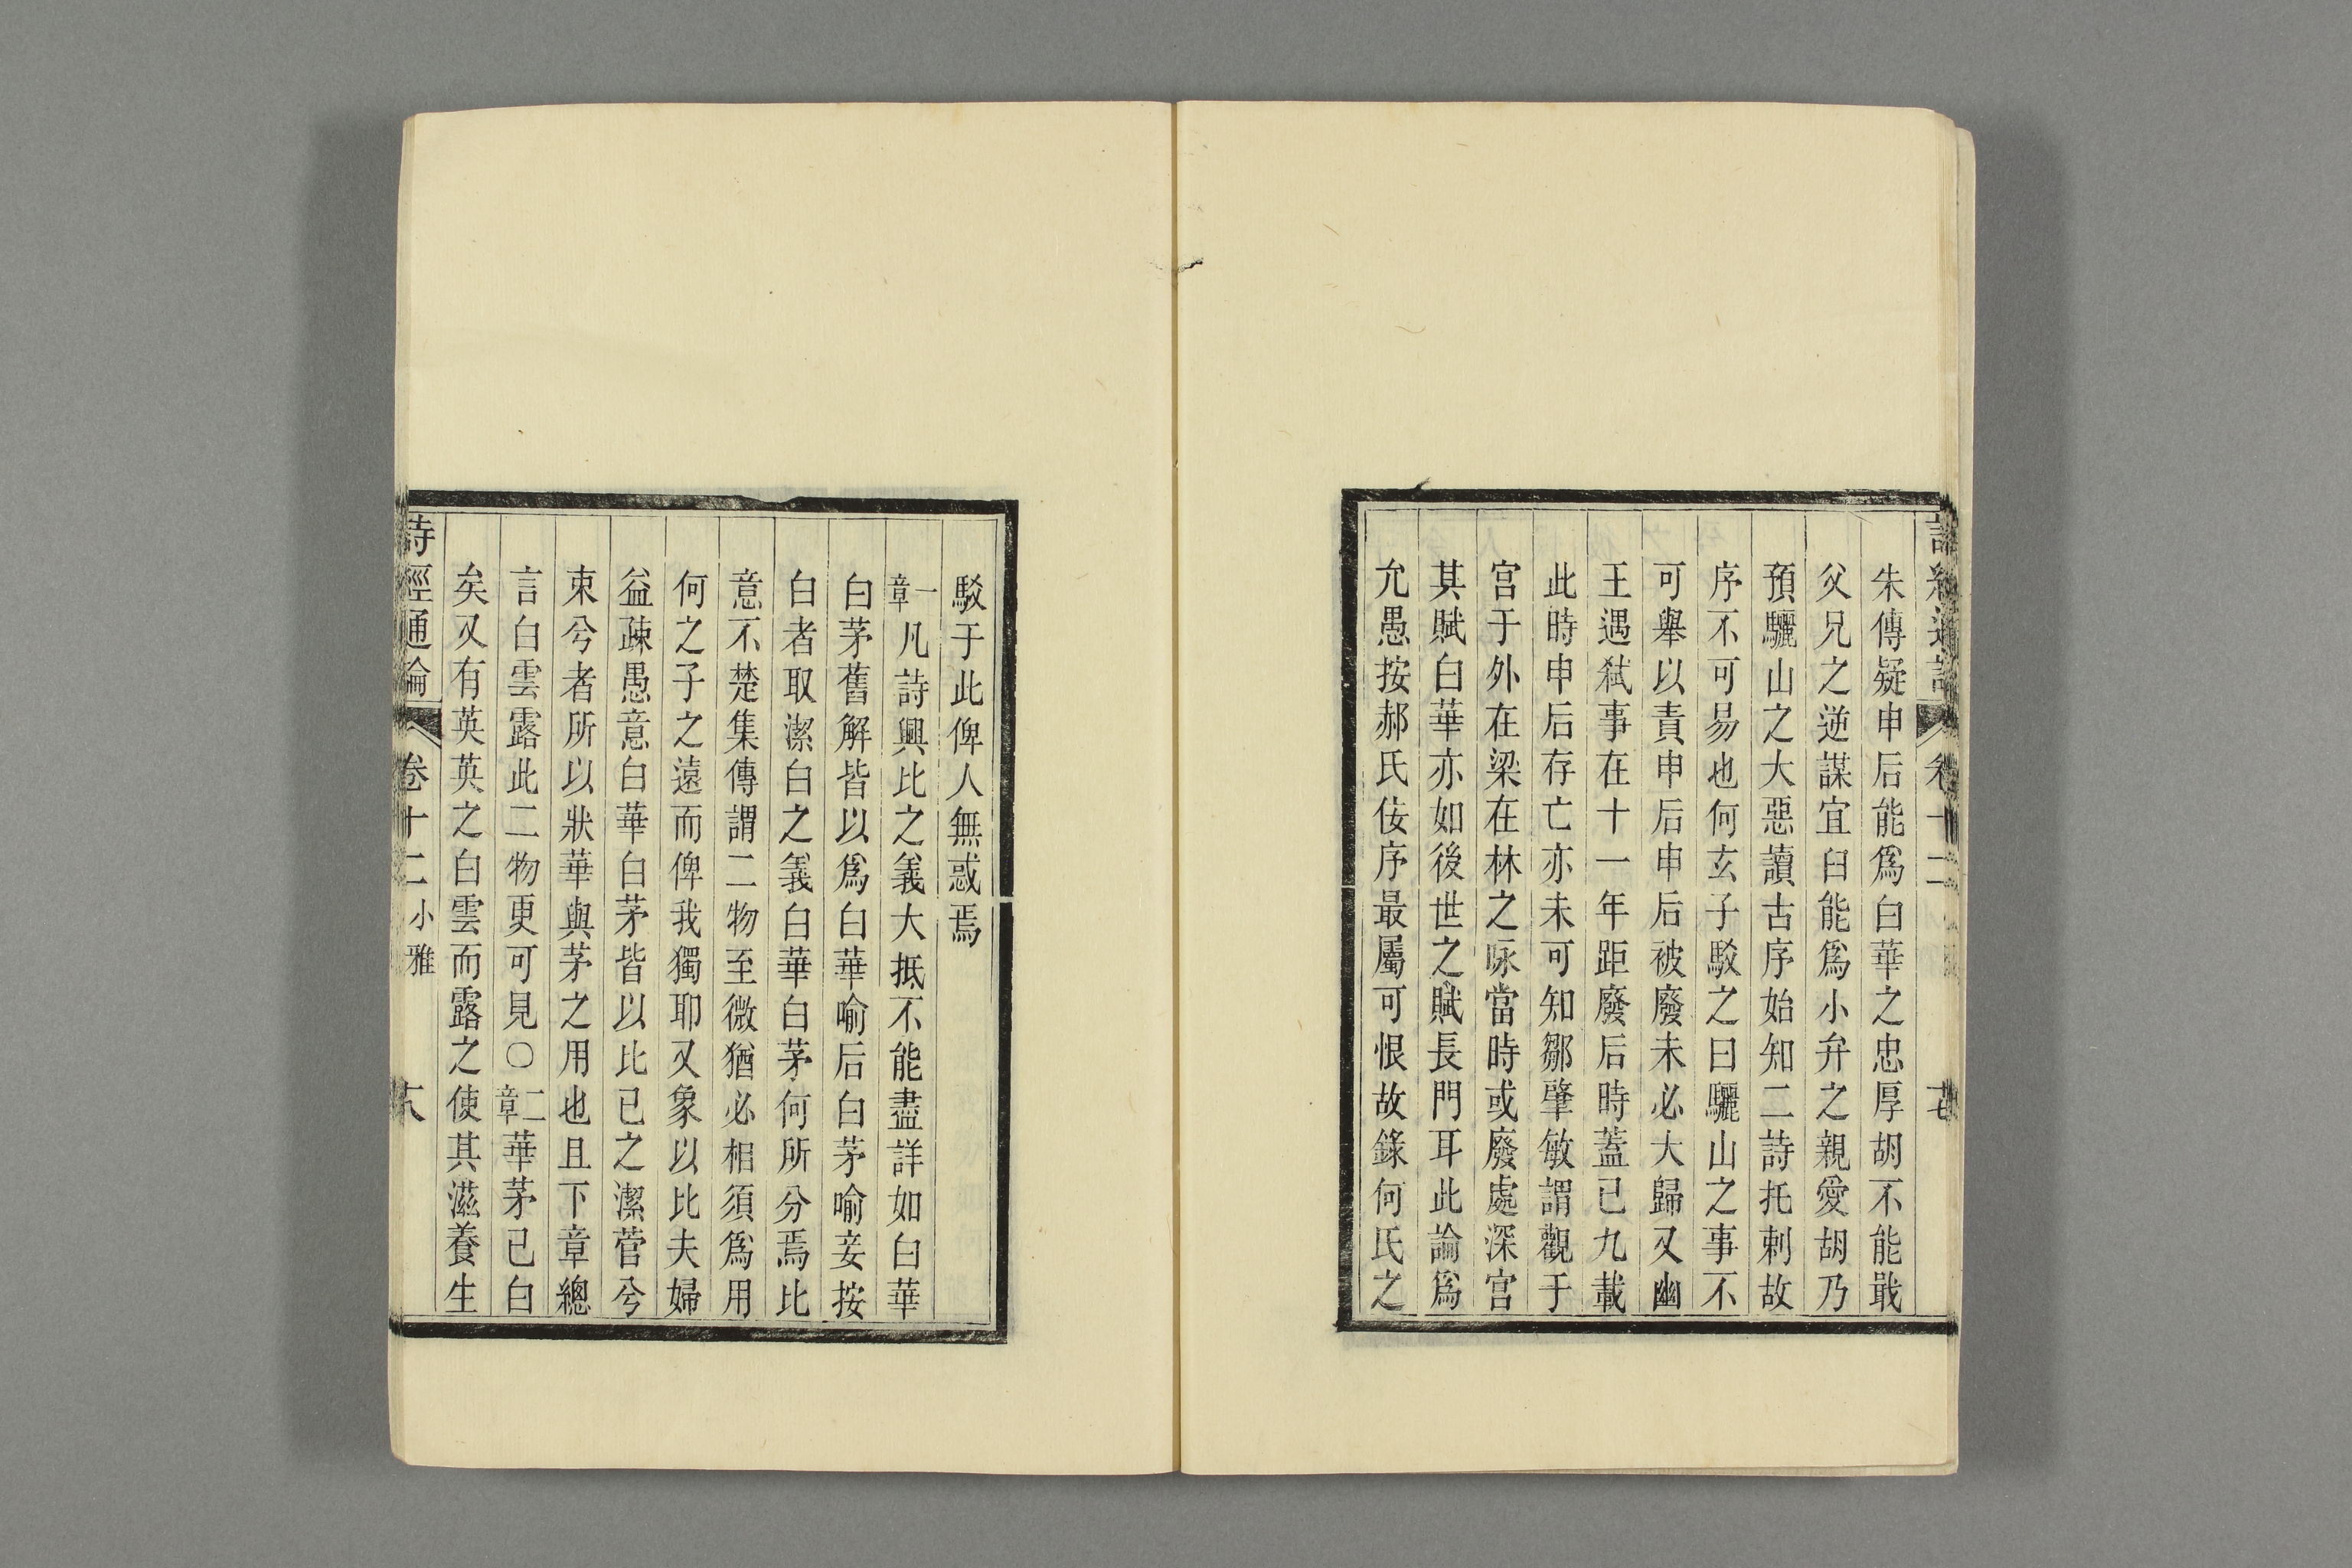 朱傳疑申后能爲白華之忠厚胡不能戢
父兄之逆謀宜臼能爲小弁之親愛胡乃
預驪山之大惡讀古序始知二詩托刺故
序不可易也何玄子駁之曰驪山之事不
可舉以責申后申后被廢未必大歸又幽
王遇弒事在十一年距廢后時蓋已九載
此時申后存亡亦未可知鄒肇敏謂觀于
宮于外在梁在林之咏當時或廢處深宮
其賦白華亦如後世之賦長門耳此論爲
允愚按郝氏佞序最屬可恨故錄何氏之
駁于此俾人無惑焉
一章凡詩興比之義大抵不能盡詳如白華
白茅舊解皆以爲白華喻后白茅喻妾按
白者取潔白之義白華白茅何所分焉比
意不楚集傳謂二物至微猶必相須爲用
何之子之遠而俾我獨耶又象以比夫婦
益疎愚意白華白茅皆以比已之潔菅兮
束兮者所以狀華與茅之用也且下章總
言白雲露此二物更可見○二章華茅已白
矣又有英英之白雲而露之使其滋養生
詩經通論 卷十二 小雅 十八